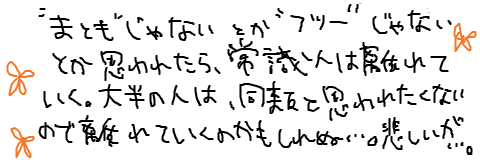 "まとも"じゃない とか "フツー"じゃない
とか思われたら、常識人は離れて
いく。大半の人は、同類と思われたくない
ので離れていくのかもしれぬ…。悲しいが…。